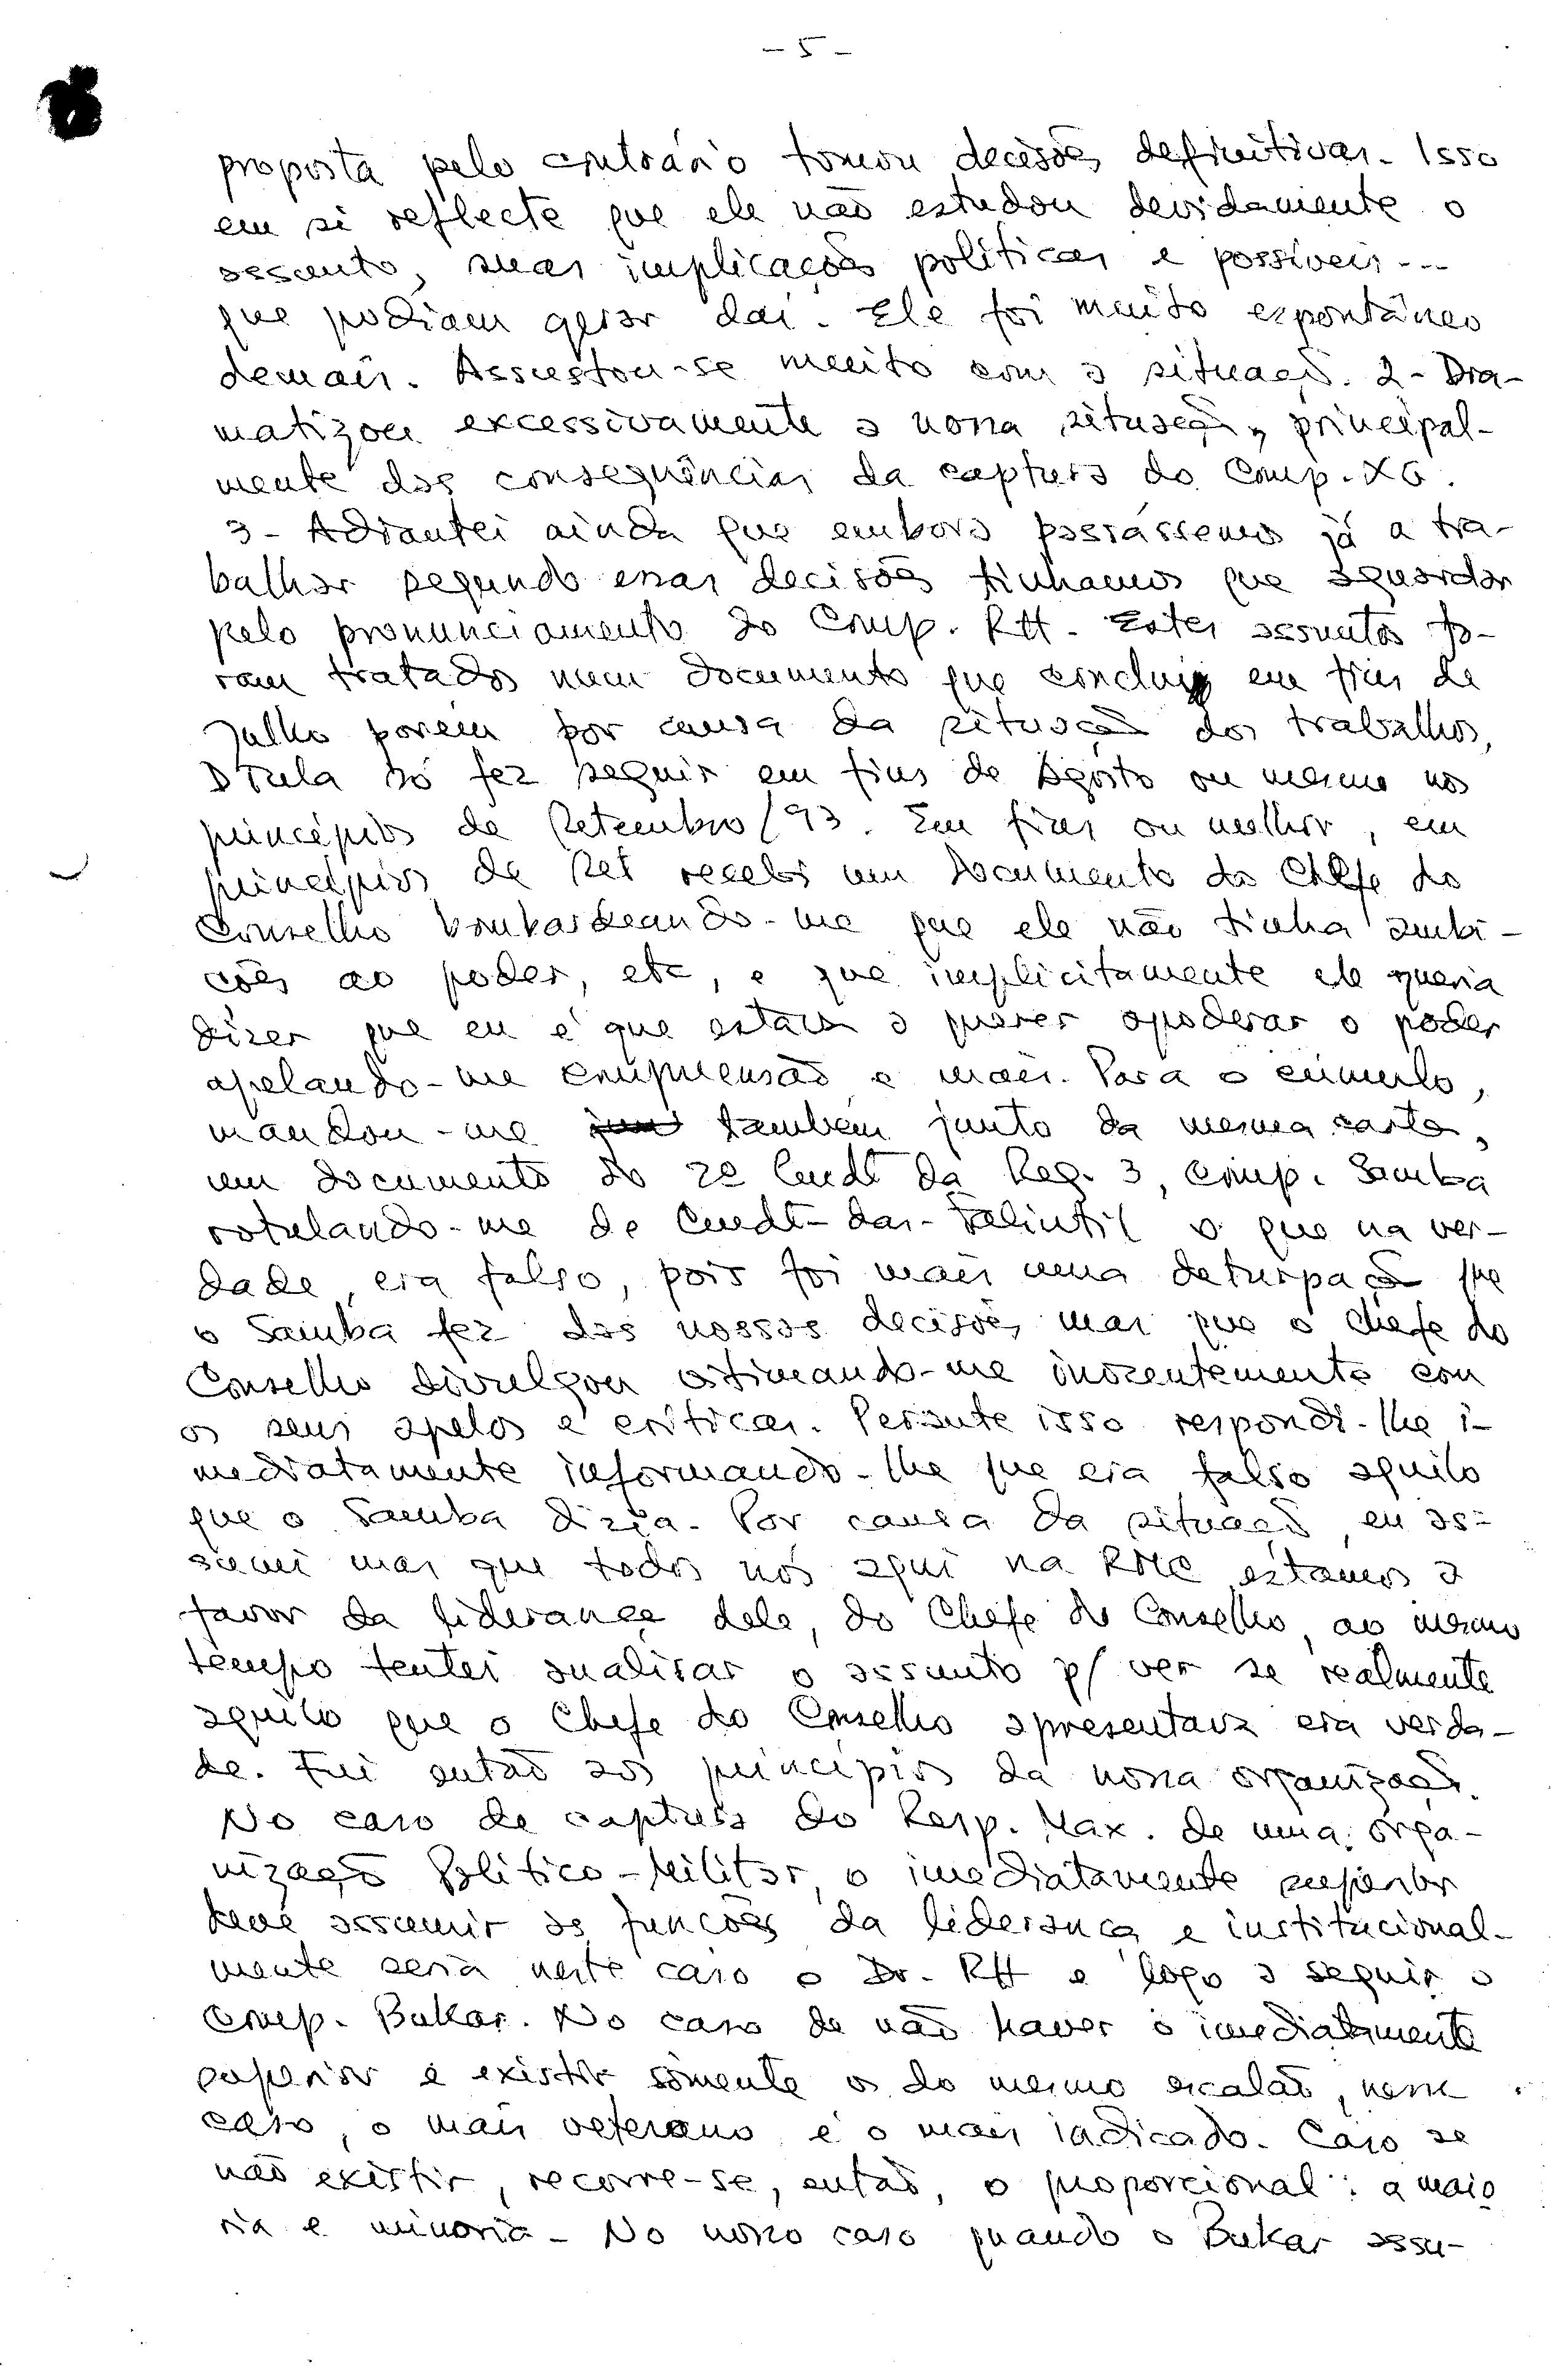 - 5 -
proposta pelo contrário tomou decisões definitivas. Isso
em si reflecte que ele não estudou devidamente o
assunto, suas implicações políticas e possíveis...
que podiam gerar daí. Ele foi muito espontâneo
demais. Assustou-se muito com a situação. 2- Dra-
matizou excessivamente a nossa situação, principal-
mente das consequências da captura do Comp. XG.
3- Adiantei ainda que embora passássemos já a tra-
balhar segundo essas decisões tínhamos que aguardar
pelo pronunciamento do Comp. RH. Estes assuntos fo-
ram tratados num documento que conclui em fins de
Julho porém por causa da situação dos trabalhos,
D Tula só fez seguir em fins de Agosto ou mesmo nos
princípios de Setembro/93. Em fins ou melhor, em
princípios de Set recebi um documento do Chefe do
Conselho bombardeando-me que ele não tinha ambi-
ções ao poder, etc, e que implicitamente ele queria
dizer que eu é que estava a querer apoderar o poder
apelando-me compreensão e mais. Para o cúmulo,
mandou-me também junto da mesma carta,
um documento do 2º Cmdt da Reg. 3, Comp. Samba
rotulando-me de Cmdt-das-Falintil o que na ver-
dade, era falso, pois foi mais uma deturpação que
o Samba fez das nossas decisões, mas que o Chefe do
Conselho divulgou vitimando-me inocentemente com
os seus apelos e críticas. Perante isso respondi-lhe i-
mediatamente informando-lhe que era falso aquilo
que o Samba dizia. Por causa da situação, eu as-
sumi mas que todos nós aqui na RMC estamos a
favor da liderança dele, do Chefe do Conselho, ao mesmo
tempo tentei analisar o assunto p/ ver se realmente
aquilo que o Chefe do Conselho apresentava era verda-
de. Fui então aos princípios da nossa organização.
No caso de captura do Resp. Max. de uma orga-
nização Político-Militar, o imediatamente superior
deve assumir as funções da liderança e institucional-
mente seria neste caso o Dr. RH e logo a seguir o
Comp. Bukar. No caso de não haver o imediatamente
superior e existir sòmente os do mesmo escalão, nesse
caso, o mais veterano é o mais indicado. Caso se
não existir, recorre-se, então, o proporcional: a maio
ria e minoria - No nosso caso quando o Bukar assu-